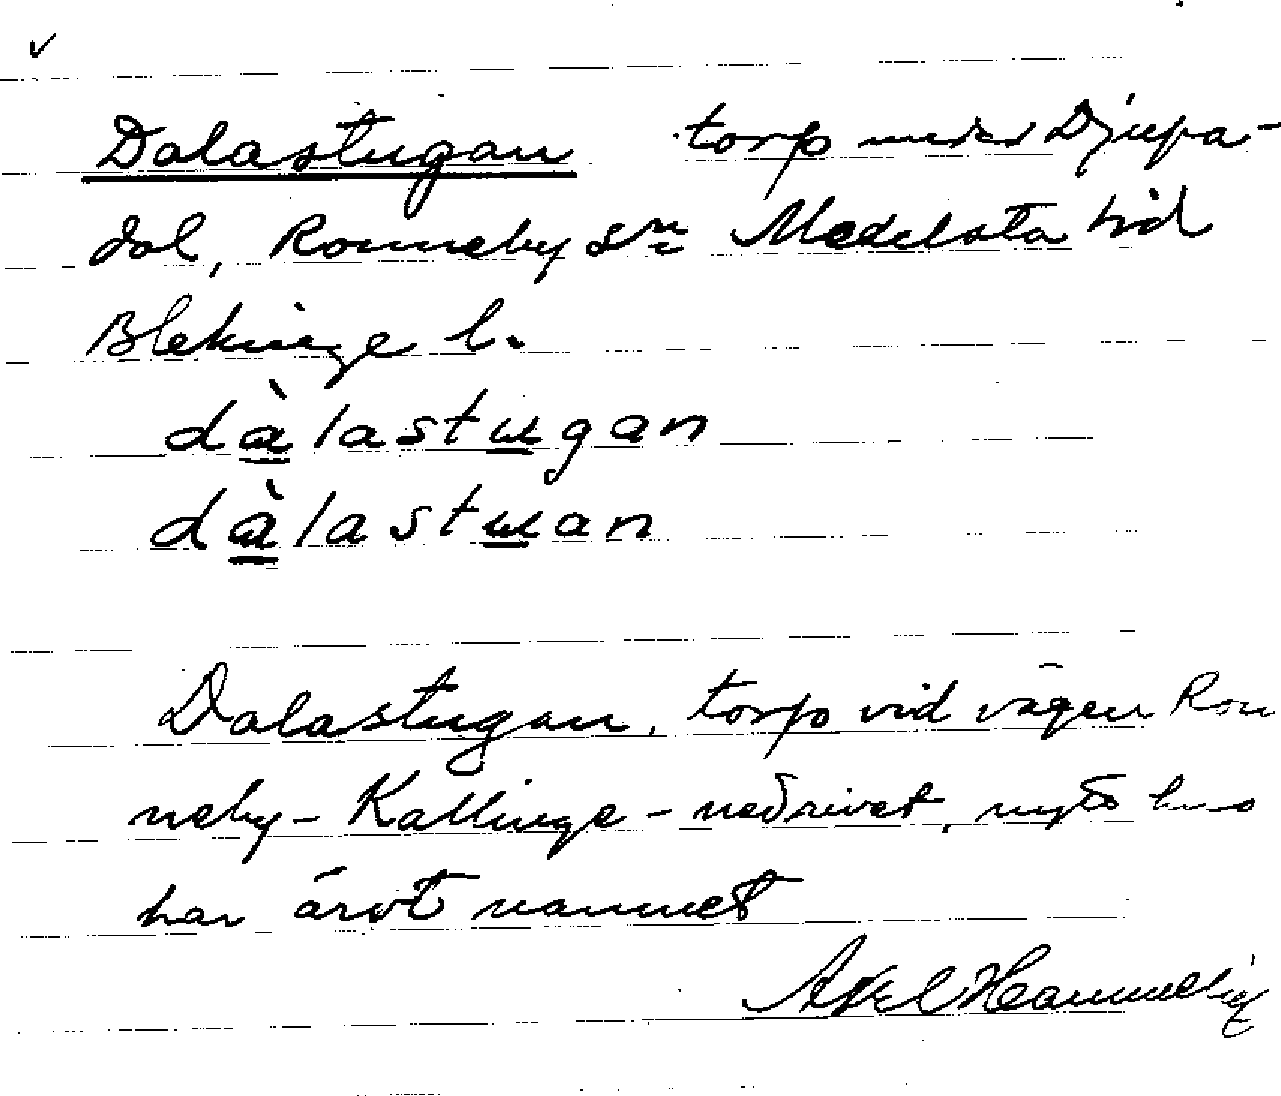 Dalastugan torp under Djupa-
dal, Ronneby sn Medelsta hd
Blekinge l.
dàlastugan
dàlastuan
Dalastugan, torp vid vägen Ron
neby - Kallinge - nedrivet, nytt hus
har ärvt namnet
Axel